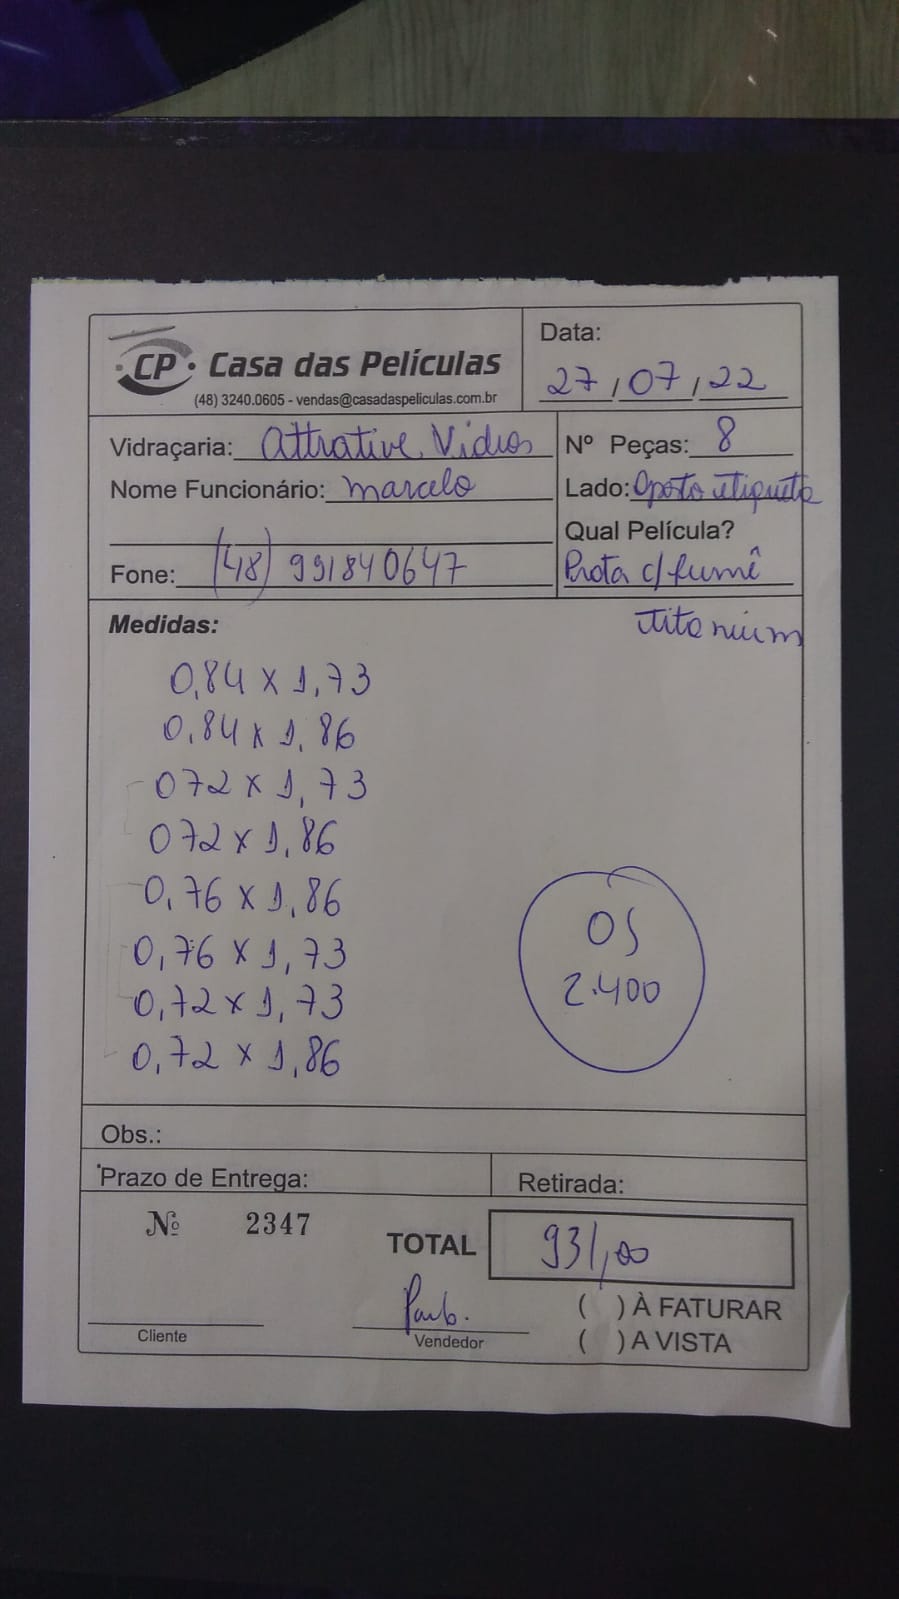 CP Casa das Películas
(48) 3240.0605 - vendas@casadaspeliculas.com.br
Data:
27/07/22
Vidraçaria: Attrative Vidros
Nº Peças: 8
Nome Funcionário: Marcelo
Lado: Oposto etiqueta
Qual Película?
Fone: (48) 991840647
Prata c/ fumê
titanium
Medidas:
0,84 x 1,73
0,84 x 1,86
072 x 1,73
072 x 1,86
0,76 x 1,86
0,76 x 1,73
0,72 x 1,73
0,72 x 1,86
OS
2.400
Obs.:
Prazo de Entrega:
Retirada:
Nº 2347
TOTAL 931,00
( ) À FATURAR
( ) A VISTA
Cliente
Vendedor